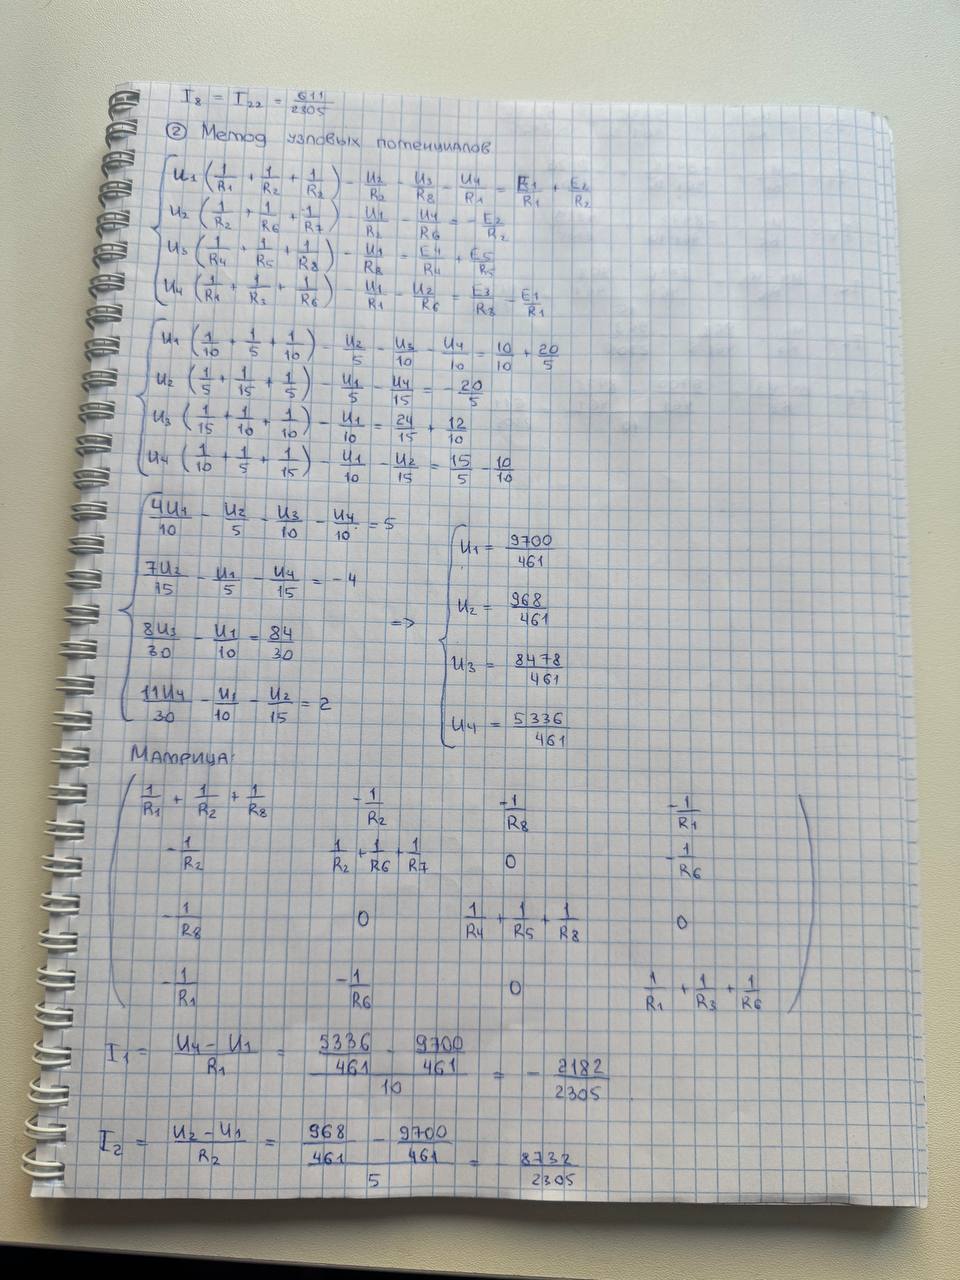 I8 = I22 = 611/2305
② Метод узловых потенциалов
U1 (1/R1 + 1/R2 + 1/R8) - U2/R2 - U3/R8 - U4/R1 = E1/R1 + E2/R2
U2 (1/R2 + 1/R6 + 1/R7) - U1/R2 - U4/R6 = - E2/R2
U3 (1/R4 + 1/R5 + 1/R8) - U1/R8 = E4/R4 + E5/R5
U4 (1/R1 + 1/R3 + 1/R6) - U1/R1 - U2/R6 = E3/R3 - E1/R1
U1 (1/10 + 1/5 + 1/10) - U2/5 - U3/10 - U4/10 = 10/10 + 20/5
U2 (1/5 + 1/15 + 1/5) - U1/5 - U4/15 = - 20/5
U3 (1/15 + 1/10 + 1/10) - U1/10 = 24/15 + 12/10
U4 (1/10 + 1/5 + 1/15) - U1/10 - U2/15 = 15/5 - 10/10
4U1/10 - U2/5 - U3/10 - U4/10 = 5
7U2/15 - U1/5 - U4/15 = - 4
8U3/30 - U1/10 = 84/30
11U4/30 - U1/10 - U2/15 = 2
=>
U1 = 9700/461
U2 = 968/461
U3 = 8478/461
U4 = 5336/461
Матрица:
1/R1 + 1/R2 + 1/R8 -1/R2 -1/R8 -1/R1
-1/R2 1/R2 + 1/R6 + 1/R7 0 -1/R6
-1/R8 0 1/R4 + 1/R5 + 1/R8 0
-1/R1 -1/R6 0 1/R1 + 1/R3 + 1/R6
I1 = (U4 - U1)/R1 = (5336/461 - 9700/461)/10 = - 2182/2305
I2 = (U2 - U1)/R2 = (968/461 - 9700/461)/5 = - 8732/2305